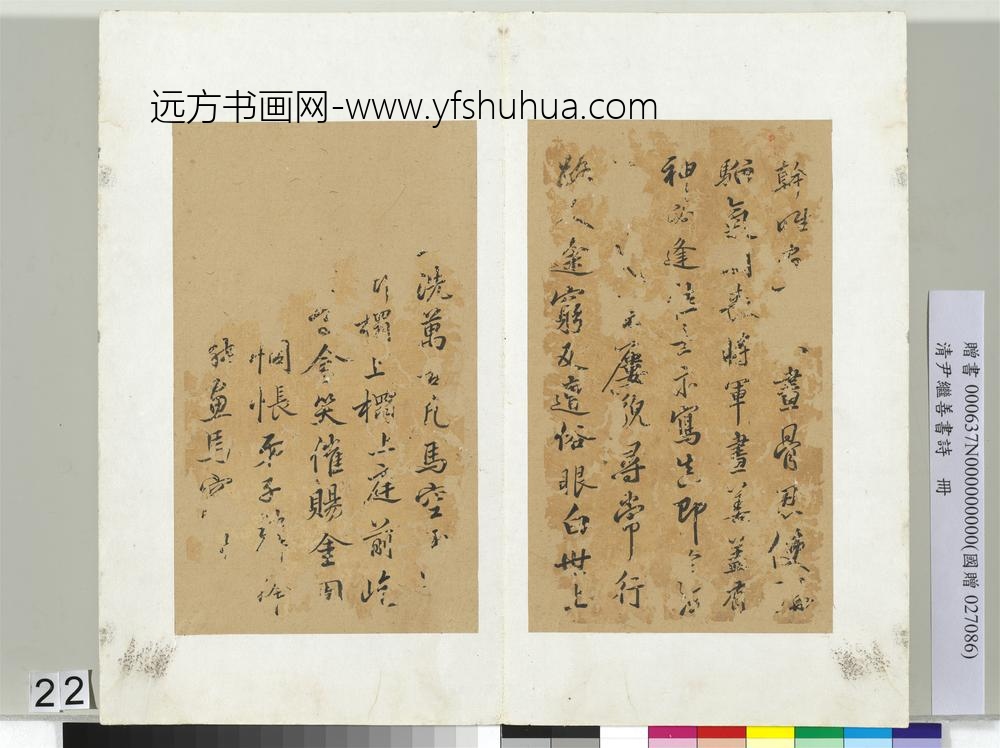 远方书画网-www.yfshuhua.com
幹唯畫骨忍使驊
騮氣凋喪將軍畫善蓋有
神必逢佳士亦寫真即今漂
屢貌尋常行
路人途窮反遭俗眼白世上
一洗萬古凡馬空玉
榻上榻上庭前屹
含笑催賜金圉
惆悵弟子韓
畫馬
贈書 000637N000000000(國贈 027086)
清尹繼善書詩 冊
22